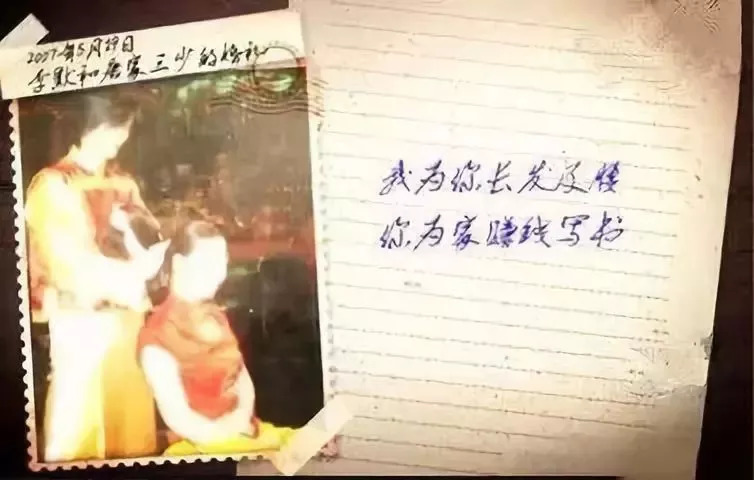 2007年5月19日
李默和唐家三少的婚礼
我为你长发及腰
你为家赚钱写书